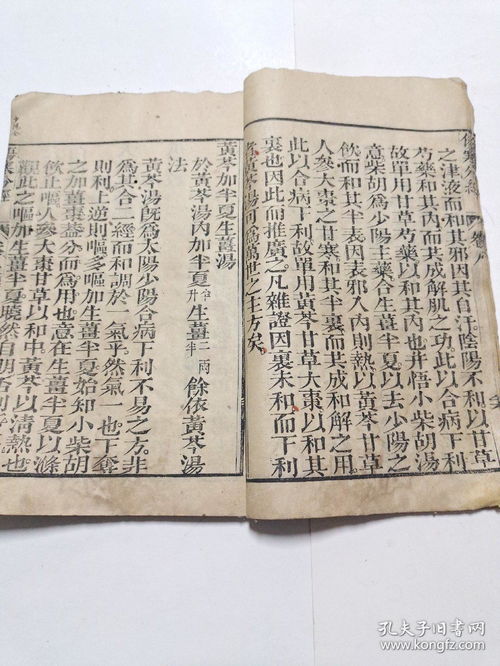 之津液而和其邪因其自汗陰陽不和以甘草
芍藥和其內而其成解肌之功此以合病下利
故單用甘草芍藥以和其內也并悟小柴胡湯
意柴胡為少陽主藥合生薑半夏以去少陽之
飲而和其半表因表邪入內則熱以黃芩甘草
人參大棗甘寒和其半裏而其成和解之用
此以合病下利故單用黃芩甘草大棗以和其
裏也因此而推廣之凡雜證因裏未和而下利
黃芩湯可為萬世之主方矣
黃芩加半夏生薑湯
於黃芩湯內加半夏半升生薑一兩半餘依黃芩湯
法
黃芩湯既為太陽少陽合病下利不易之方非
為其合二經而和調於一氣乎然氣一也下奪
則利上逆則嘔多嘔加生薑半夏始知小柴胡
之加薑棗蓋分而為用也意在生薑半夏以滌
飲止嘔人參大棗甘草以和中黃芩以清熱也
觀此之嘔加生薑半夏曉然自明否則
孔夫子旧书网